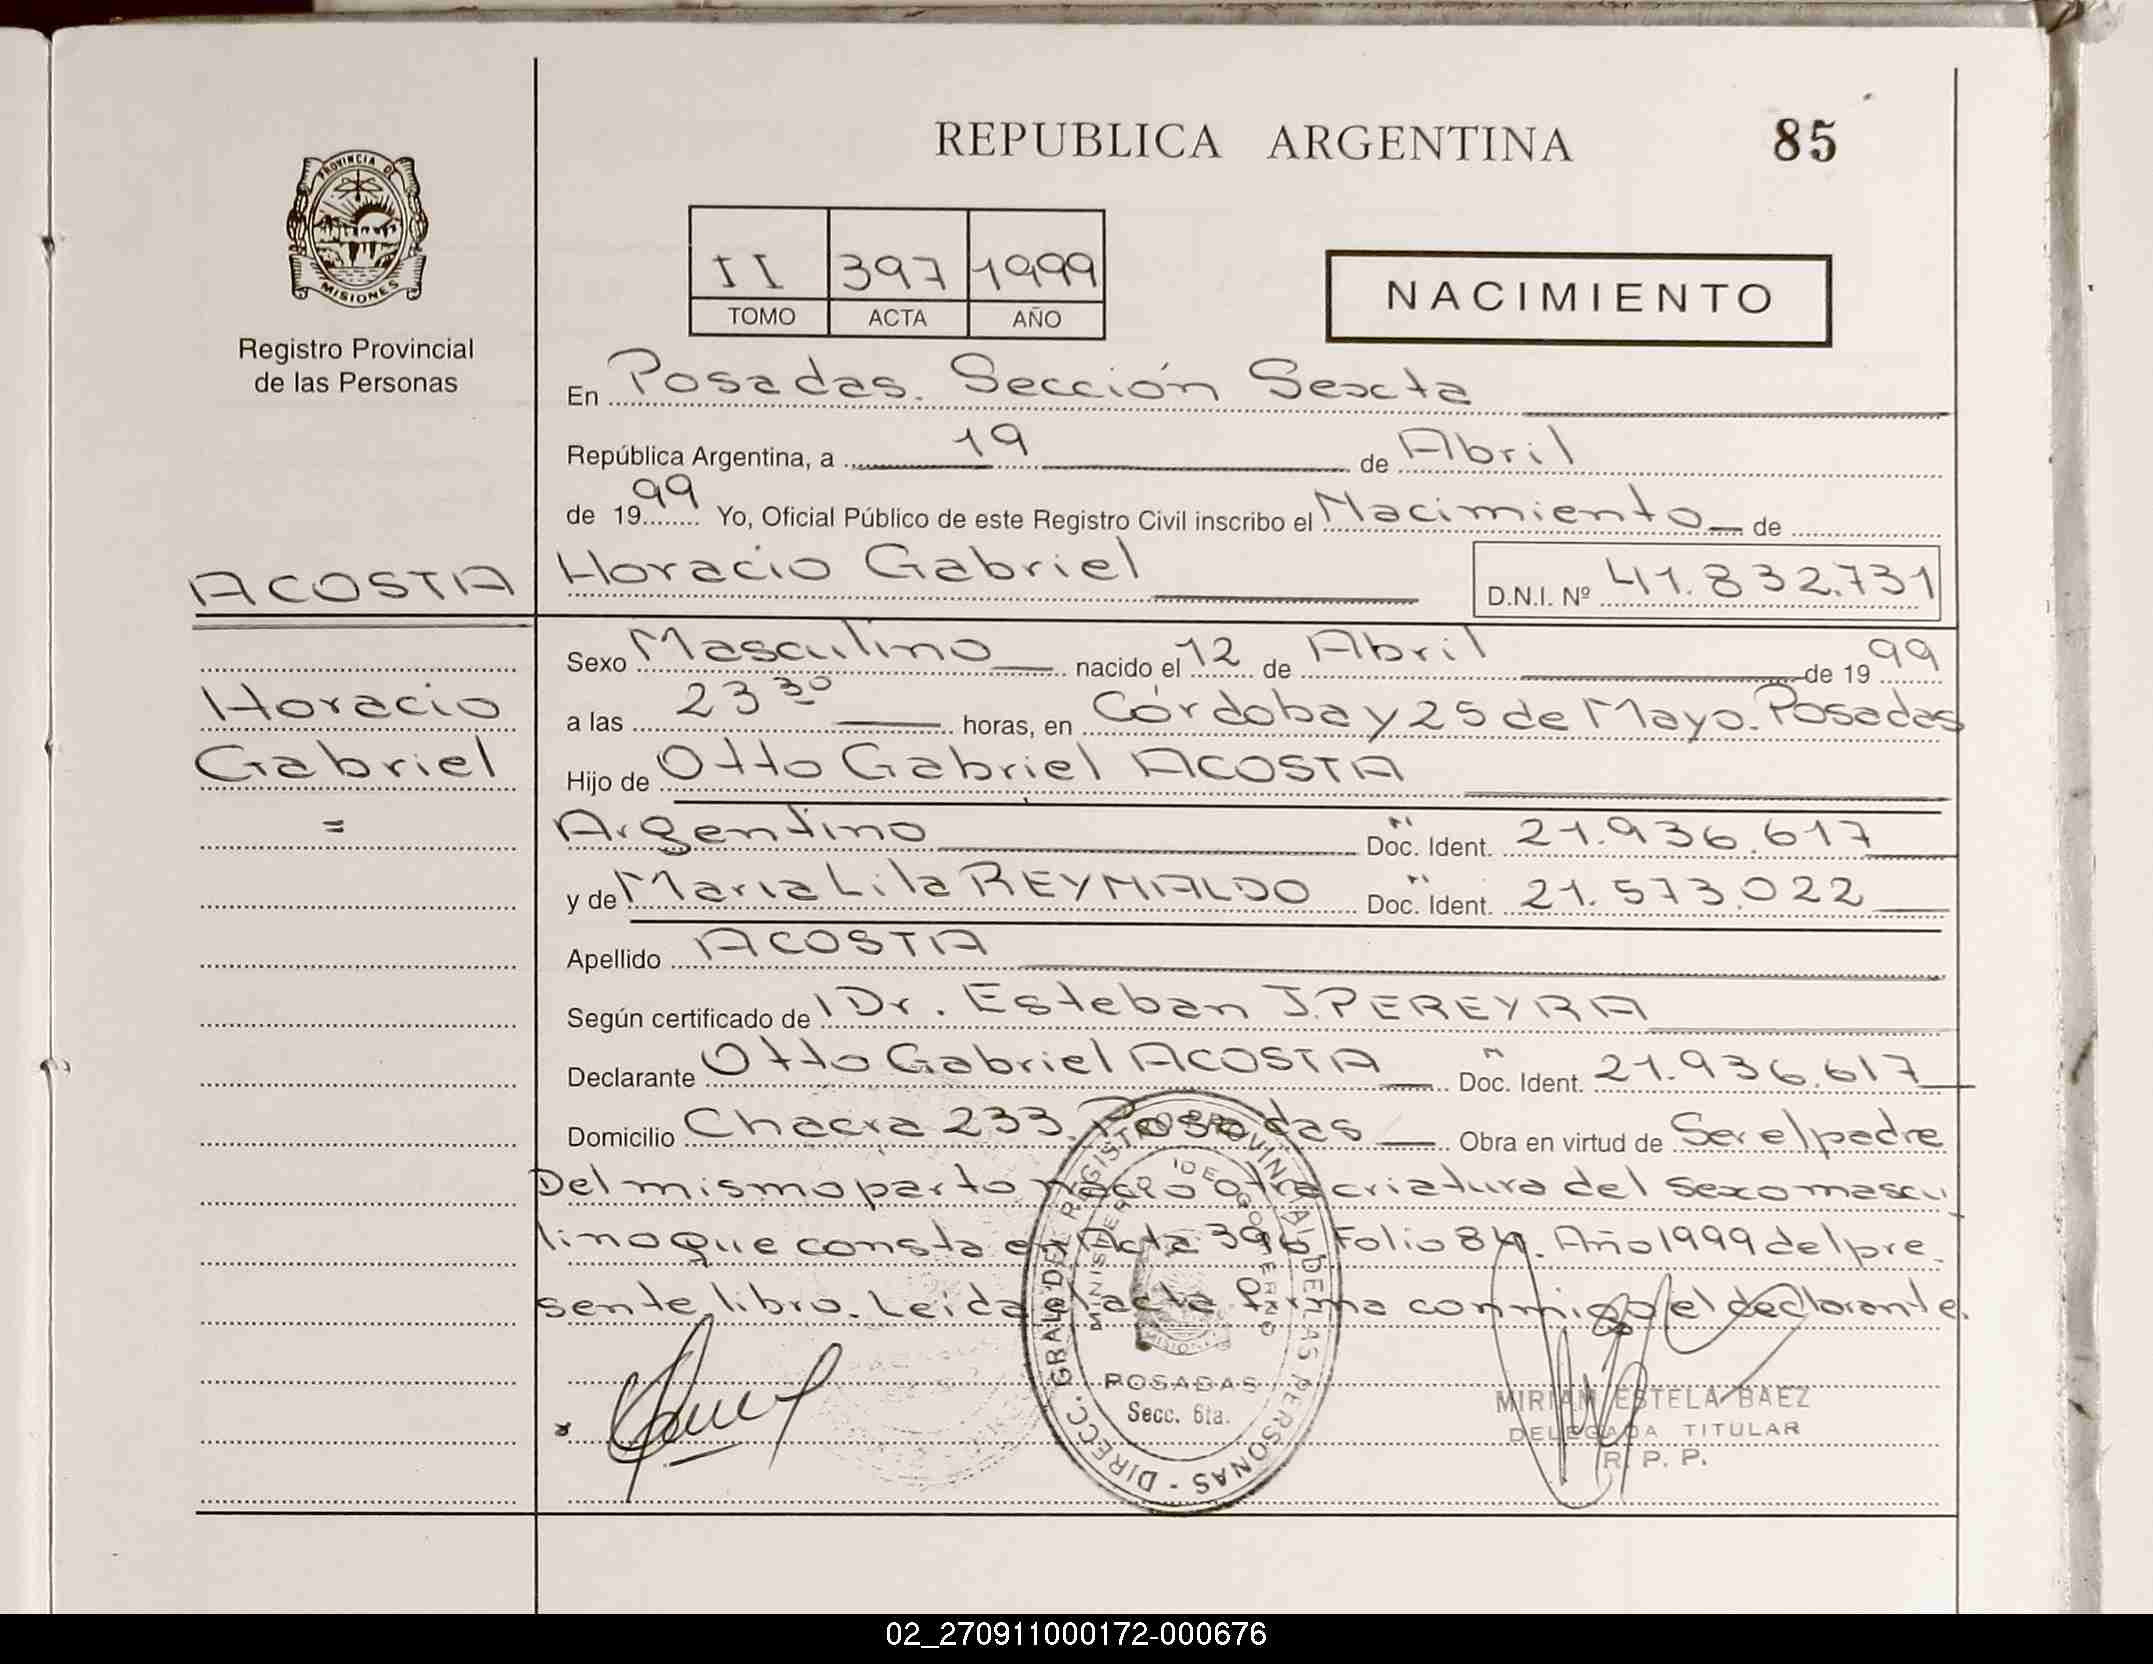 REPUBLICA ARGENTINA
85
PROVINCIA DE
MISIONES
Registro Provincial
de las Personas
II 397 1999
TOMO ACTA AÑO
NACIMIENTO
En Posadas. Sección Sexta
República Argentina, a 19 de Abril
de 1999 Yo, Oficial Público de este Registro Civil inscribo el Nacimiento de
ACOSTA
Horacio Gabriel
D.N.I. Nº 41.832.731
Sexo Masculino nacido el 12 de Abril de 1999
Horacio
a las 23 30 horas, en Córdoba y 25 de Mayo. Posadas
Gabriel
Hijo de Otto Gabriel ACOSTA
=
Argentino Doc. Ident. 21.936.617
y de Maria Lila REYNALDO Doc. Ident. 21.573.022
Apellido ACOSTA
Según certificado de Dr. Esteban J. PEREYRA
Declarante Otto Gabriel ACOSTA Doc. Ident. 21.936.617
Domicilio Chacra 233. Posadas Obra en virtud de Ser el padre
Del mismo parto nació otra criatura del sexo mascu
lino que consta en Acta 396 Folio 84. Año 1999 del pre
sente libro. Leida el acta firma conmigo el declarante.
DIRECC. GRAL. DEL REGISTRO PROVINCIAL DE LAS PERSONAS -
MINISTERIO DE GOBIERNO
MISIONES
POSADAS
Secc. 6ta.
MIRIAN ESTELA BAEZ
DELEGADA TITULAR
R. P. P.
02_270911000172-000676